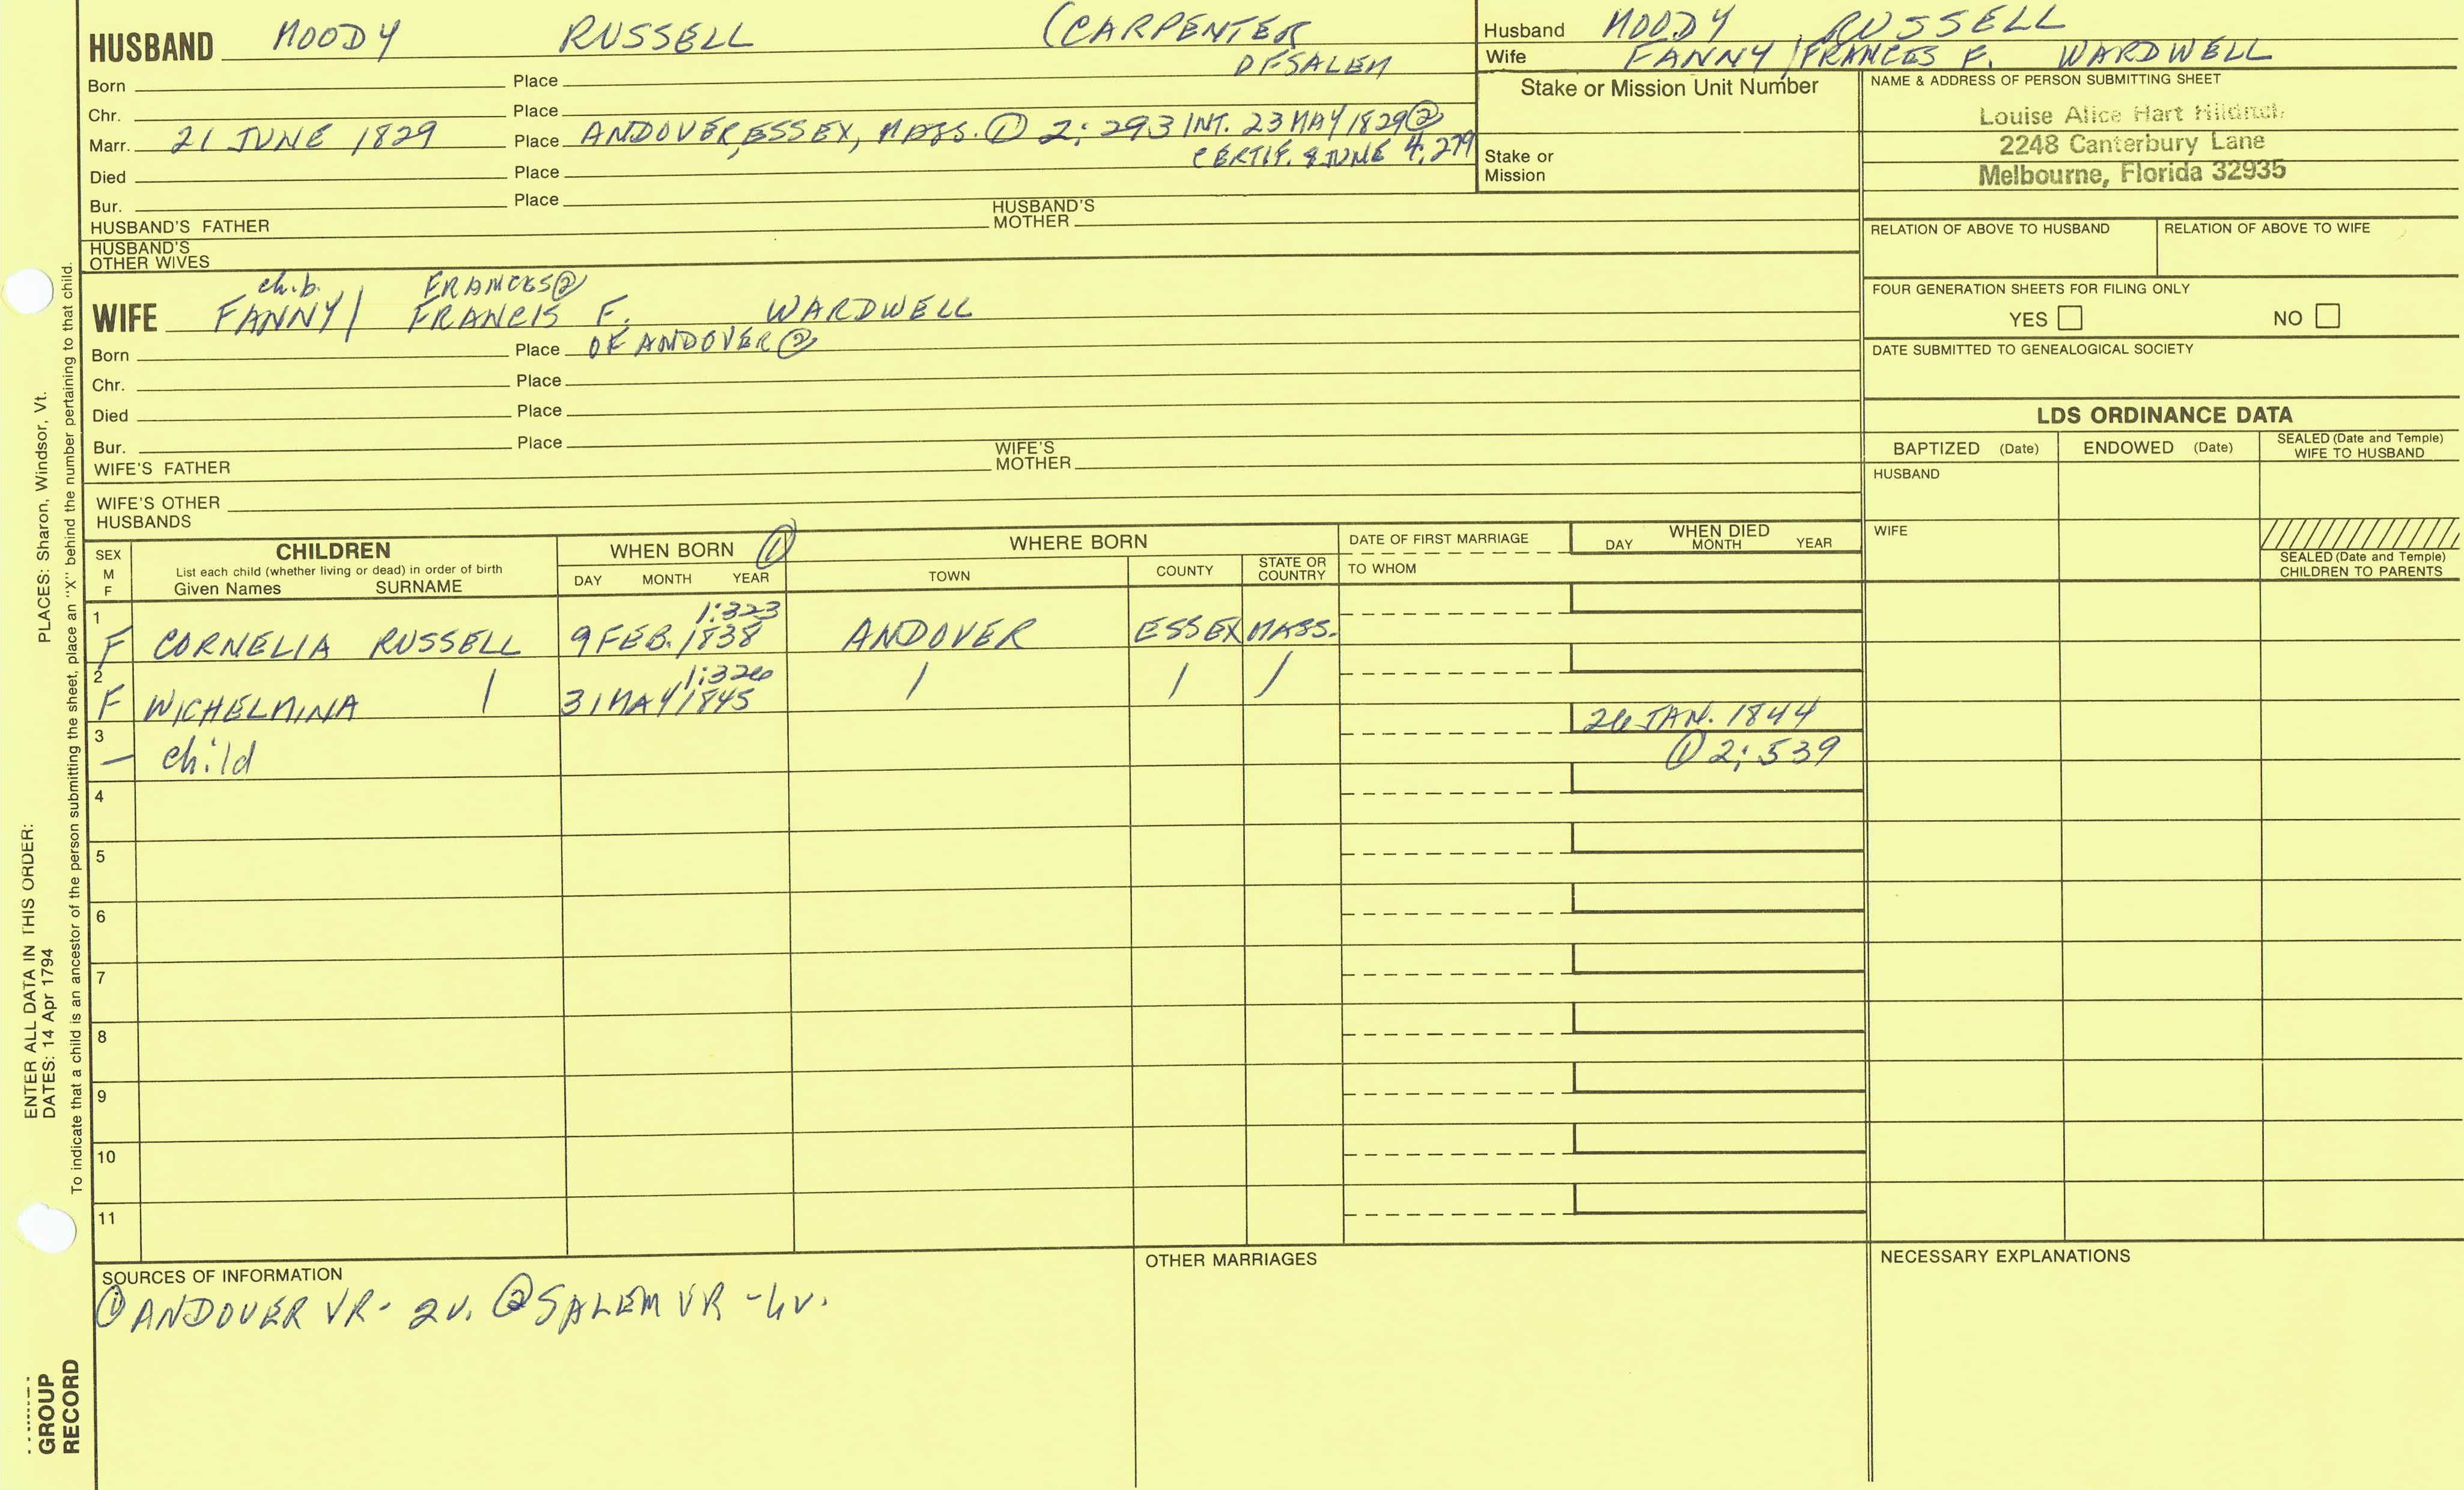 HUSBAND MOODY RUSSELL (CARPENTER
OF SALEM
Born Place
Chr. Place
Marr. 21 JUNE 1829 Place ANDOVER, ESSEX, MASS. ① 2:293 INT. 23 MAY 1829 ②
CERTIF. 8 JUNE 4:279
Died Place
Bur. Place
HUSBAND'S FATHER HUSBAND'S MOTHER
HUSBAND'S OTHER WIVES
ch.b. FRANCES ②
WIFE FANNY/ FRANCIS F. WARDWELL
Born Place OF ANDOVER ②
Chr. Place
Died Place
Bur. Place
WIFE'S FATHER WIFE'S MOTHER
WIFE'S OTHER HUSBANDS
Husband MOODY RUSSELL
Wife FANNY/FRANCES F. WARDWELL
Stake or Mission Unit Number
Stake or
Mission
NAME & ADDRESS OF PERSON SUBMITTING SHEET
Louise Alice Hart
2248 Canterbury Lane
Melbourne, Florida 32935
RELATION OF ABOVE TO HUSBAND RELATION OF ABOVE TO WIFE
FOUR GENERATION SHEETS FOR FILING ONLY
YES NO
DATE SUBMITTED TO GENEALOGICAL SOCIETY
LDS ORDINANCE DATA
BAPTIZED (Date) ENDOWED (Date) SEALED (Date and Temple) WIFE TO HUSBAND
HUSBAND
WIFE
SEALED (Date and Temple)
CHILDREN TO PARENTS
SEX
M
F
CHILDREN
List each child (whether living or dead) in order of birth
Given Names SURNAME
WHEN BORN ①
DAY MONTH YEAR
WHERE BORN
TOWN COUNTY STATE OR COUNTRY
DATE OF FIRST MARRIAGE
TO WHOM
WHEN DIED
DAY MONTH YEAR
1 1:323
F CORNELIA RUSSELL 9 FEB. 1838 ANDOVER ESSEX MASS.
2 1:326
F WICHELMINA / 31 MAY 1845 / / /
3 26 JAN. 1844
— child ① 2:539
4
5
6
7
8
9
10
11
SOURCES OF INFORMATION
① ANDOVER VR - 2v. ② SALEM VR - 4v.
OTHER MARRIAGES
NECESSARY EXPLANATIONS
ENTER ALL DATA IN THIS ORDER:
DATES: 14 Apr 1794
PLACES: Sharon, Windsor, Vt.
To indicate that a child is an ancestor of the person submitting the sheet, place an "X" behind the number pertaining to that child.
GROUP
RECORD